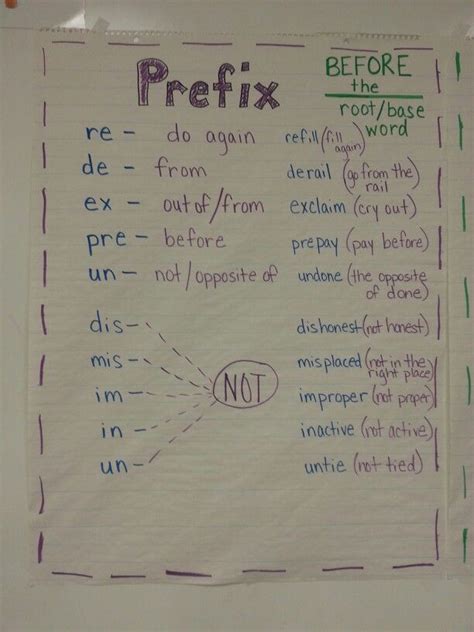 Prefix
BEFORE
the
root/base
word
re - do again refill (fill
again)
de - from derail (go from the
rail
ex - out of/from exclaim (cry out)
pre - before prepay (pay before)
un - not/opposite of undone (the opposite
of done)
dis- dishonest (not honest)
mis- misplaced (not in the
right place)
im- NOT improper (not proper)
in- inactive (not active)
un- untie (not tied)